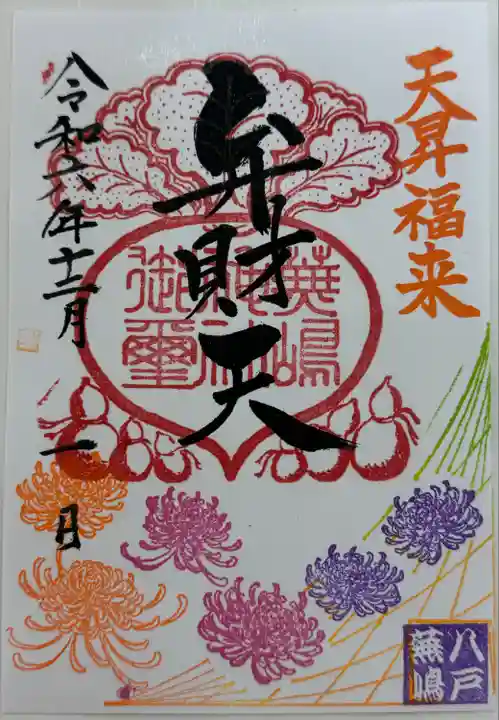 天昇福来
弁財天
蕪嶋神社
御璽
令和六年十二月一日
八戸
蕪嶋